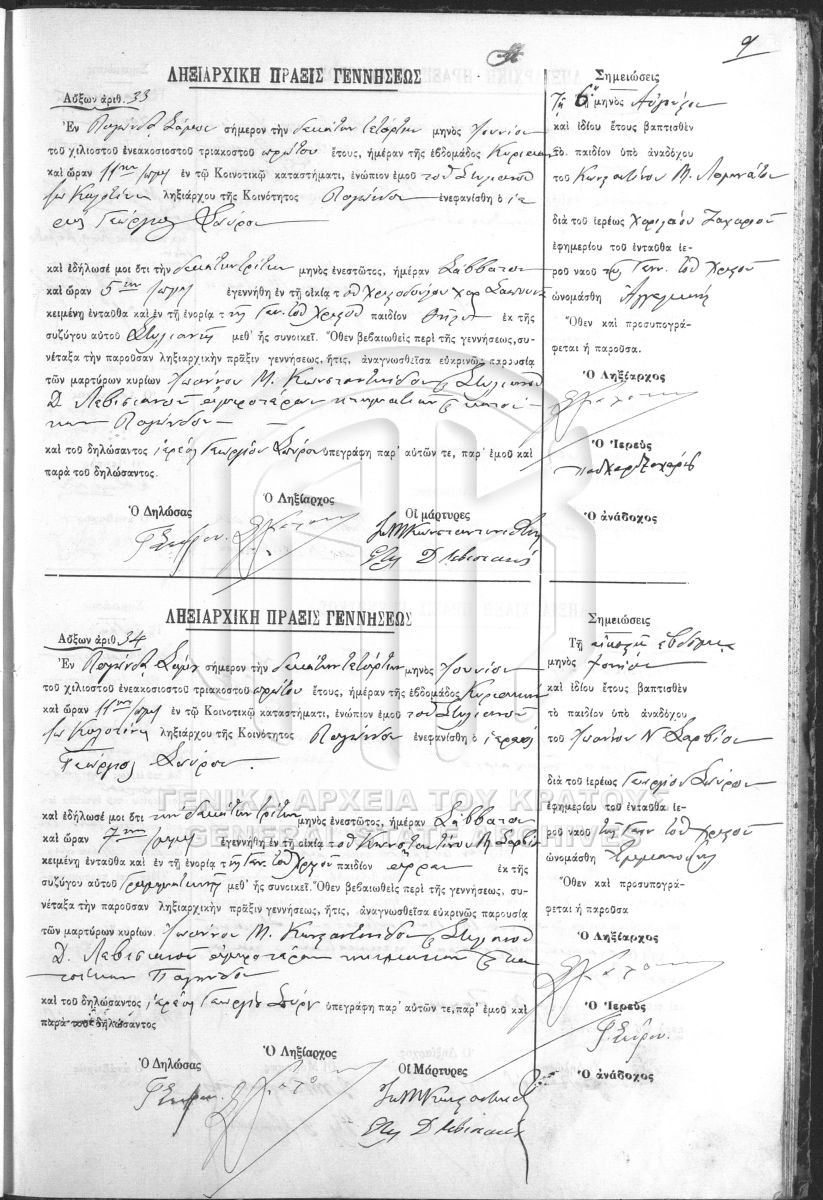 9
ΛΗΞΙΑΡΧΙΚΗ ΠΡΑΞΙΣ ΓΕΝΝΗΣΕΩΣ
Αὔξων ἀριθ. 33
Ἐν Παγώνδᾳ Σάμου σήμερον τὴν δεκάτην τετάρτην μηνὸς Ἰουνίου
τοῦ χιλιοστοῦ ἐνεακοσιοστοῦ τριακοστοῦ πρώτου ἔτους, ἡμέραν τῆς ἑβδομάδος Κυριακὴν
καὶ ὥραν 11ην π.μ. ἐν τῷ Κοινοτικῷ καταστήματι, ἐνώπιον ἐμοῦ τοῦ Στυλιανοῦ
ληξιάρχου τῆς Κοινότητος Παγώνδου ἐνεφανίσθη ὁ ἱε
ρεὺς Γεώργιος Σπύρου
καὶ ἐδήλωσέ μοι ὅτι τὴν δεκάτην τρίτην μηνὸς ἐνεστῶτος, ἡμέραν Σάββατον
καὶ ὥραν 5ην ἐγεννήθη ἐν τῇ οἰκίᾳ τοῦ
κειμένῃ ἐνταῦθα καὶ ἐν τῇ ἐνορίᾳ τῆς Γεν. τοῦ Χριστοῦ παιδίον θῆλυ ἐκ τῆς
συζύγου αὐτοῦ Στυλιανῆς μεθ' ἧς συνοικεῖ. Ὅθεν βεβαιωθεὶς περὶ τῆς γεννήσεως, συ-
νέταξα τὴν παροῦσαν ληξιαρχικὴν πρᾶξιν γεννήσεως, ἥτις, ἀναγνωσθεῖσα εὐκρινῶς παρουσίᾳ
τῶν μαρτύρων κυρίων Ἰωάννου Μ. Κωνσταντινίδου Στυλιανοῦ
Δ. Λεβισιανοῦ ἀμφοτέρων κτηματιῶν κατοί-
κων Παγώνδου
καὶ τοῦ δηλώσαντος ἱερέως Γεωργίου Σπύρου ὑπεγράφη παρ' αὐτῶν τε, παρ' ἐμοῦ καὶ
παρὰ τοῦ δηλώσαντος.
Ὁ Δηλώσας
Ὁ Ληξίαρχος
Οἱ μάρτυρες
Γ Σπύρου
Ἰω Μ Κωνσταντινίδης
Στυλ Δ Λεβισιανός
Σημειώσεις
Τῇ 6ῃ μηνὸς
καὶ ἰδίου ἔτους βαπτισθὲν
τὸ παιδίον ὑπὸ ἀναδόχου
τοῦ Κωνσταντίνου Μ.
διὰ τοῦ ἱερέως Χαριλάου Ζαχαρίου
ἐφημερίου τοῦ ἐνταῦθα ἱε-
ροῦ ναοῦ τῆς Γεν. τοῦ Χριστοῦ
ὠνομάσθη Ἀγγελικὴ
Ὅθεν καὶ προσυπογρά-
φεται ἡ παροῦσα.
Ὁ Ληξίαρχος
Ὁ Ἱερεὺς
Ὁ ἀνάδοχος
ΛΗΞΙΑΡΧΙΚΗ ΠΡΑΞΙΣ ΓΕΝΝΗΣΕΩΣ
Αὔξων ἀριθ. 34
Ἐν Παγώνδᾳ Σάμου σήμερον τὴν δεκάτην τετάρτην μηνὸς Ἰουνίου
τοῦ χιλιοστοῦ ἐνεακοσιοστοῦ τριακοστοῦ πρώτου ἔτους, ἡμέραν τῆς ἑβδομάδος Κυριακὴν
καὶ ὥραν 11ην π.μ. ἐν τῷ Κοινοτικῷ καταστήματι, ἐνώπιον ἐμοῦ τοῦ Στυλιανοῦ
ληξιάρχου τῆς Κοινότητος Παγώνδου ἐνεφανίσθη ὁ ἱερεὺς
Γεώργιος Σπύρου
καὶ ἐδήλωσέ μοι ὅτι τὴν δεκάτην τρίτην μηνὸς ἐνεστῶτος, ἡμέραν Σάββατον
καὶ ὥραν 7ην ἐγεννήθη ἐν τῇ οἰκίᾳ τοῦ Κωνσταντίνου
κειμένῃ ἐνταῦθα καὶ ἐν τῇ ἐνορίᾳ τῆς Γεν. τοῦ Χριστοῦ παιδίον ἄρρεν ἐκ τῆς
συζύγου αὐτοῦ Γραμματικῆς μεθ' ἧς συνοικεῖ. Ὅθεν βεβαιωθεὶς περὶ τῆς γεννήσεως, συ-
νέταξα τὴν παροῦσαν ληξιαρχικὴν πρᾶξιν γεννήσεως, ἥτις, ἀναγνωσθεῖσα εὐκρινῶς παρουσίᾳ
τῶν μαρτύρων κυρίων. Ἰωάννου Μ. Κωνσταντινίδου Στυλιανοῦ
Δ. Λεβισιανοῦ ἀμφοτέρων κτηματιῶν κα
τοίκων Παγώνδου
καὶ τοῦ δηλώσαντος ἱερέως Γεωργίου Σπύρου ὑπεγράφη παρ' αὐτῶν τε, παρ' ἐμοῦ καὶ
παρὰ τοῦ δηλώσαντος
Ὁ Δηλώσας
Ὁ Ληξίαρχος
Οἱ Μάρτυρες
Γ Σπύρου
Στυλ Δ Λεβισιανός
Σημειώσεις
Τῇ εἰκοστῇ ἑβδόμῃ
μηνὸς Ἰουνίου
καὶ ἰδίου ἔτους βαπτισθὲν
τὸ παιδίον ὑπὸ ἀναδόχου
τοῦ Ἰωάννου Ν
διὰ τοῦ ἱερέως Γεωργίου Σπύρου
ἐφημερίου τοῦ ἐνταῦθα ἱε-
ροῦ ναοῦ τῆς Γεν. τοῦ Χριστοῦ
ὠνομάσθη Ἐμμανουὴλ
Ὅθεν καὶ προσυπογρά-
φεται ἡ παροῦσα
Ὁ Ληξίαρχος
Ὁ Ἱερεὺς
Γ. Σπύρου.
Ὁ ἀνάδοχος
ΓΕΝΙΚΑ ΑΡΧΕΙΑ ΤΟΥ ΚΡΑΤΟΥΣ
GENERAL STATE ARCHIVES